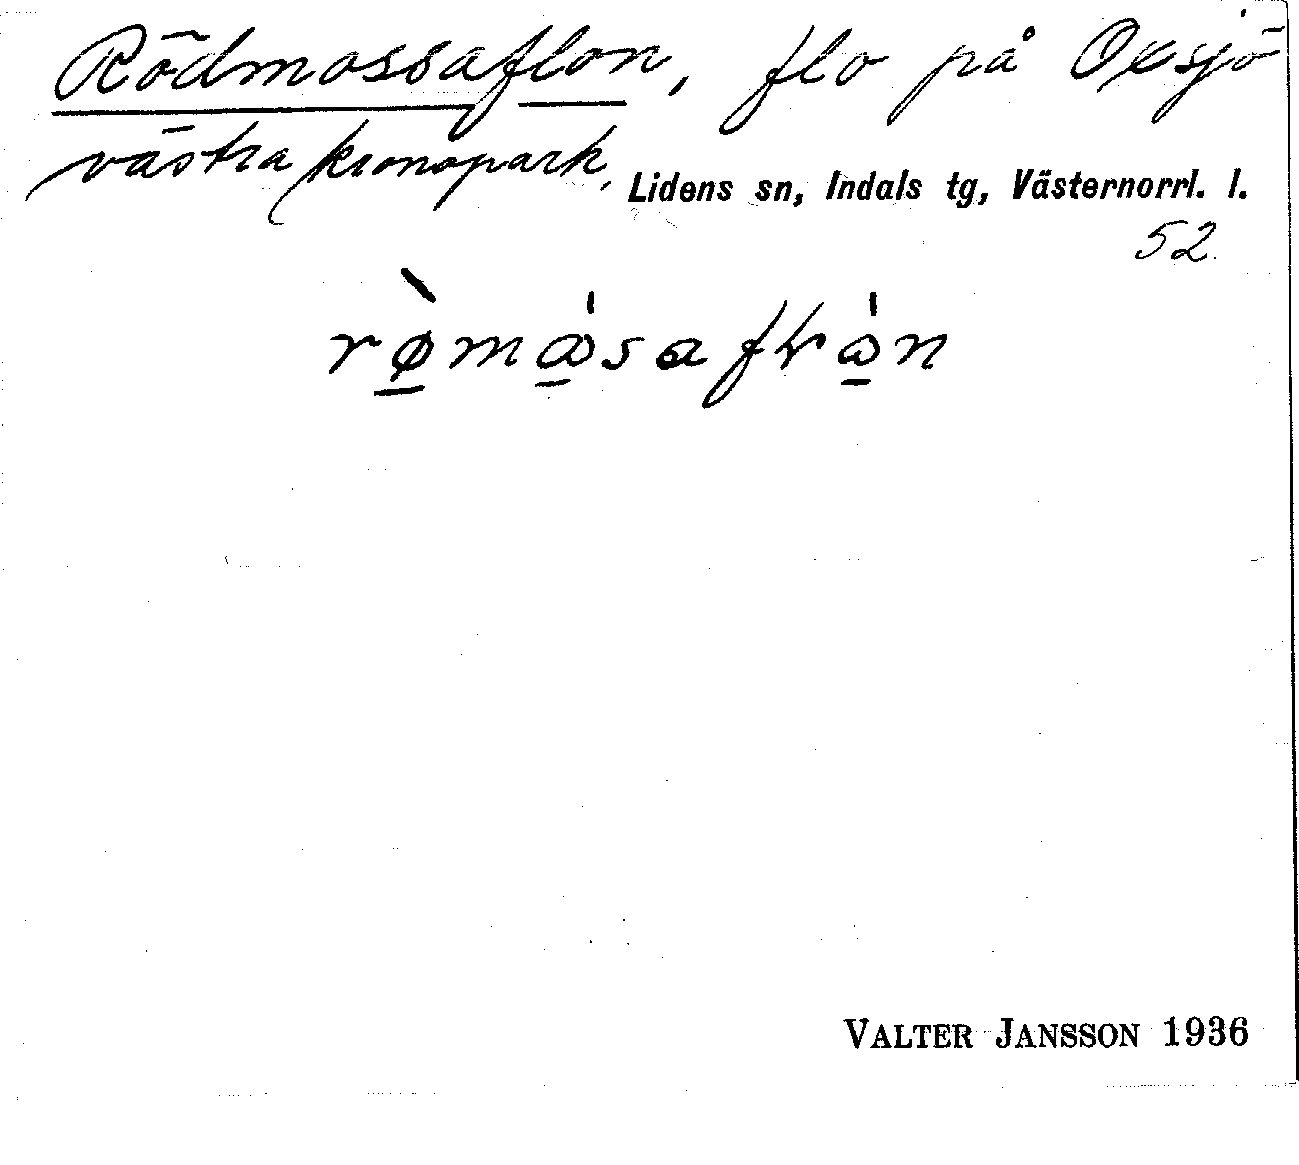 Rödmossaflon, flo på Oxsjö
västra kronopark,
Lidens sn, Indals tg, Västernorrl. l.
52.
VALTER JANSSON 1936